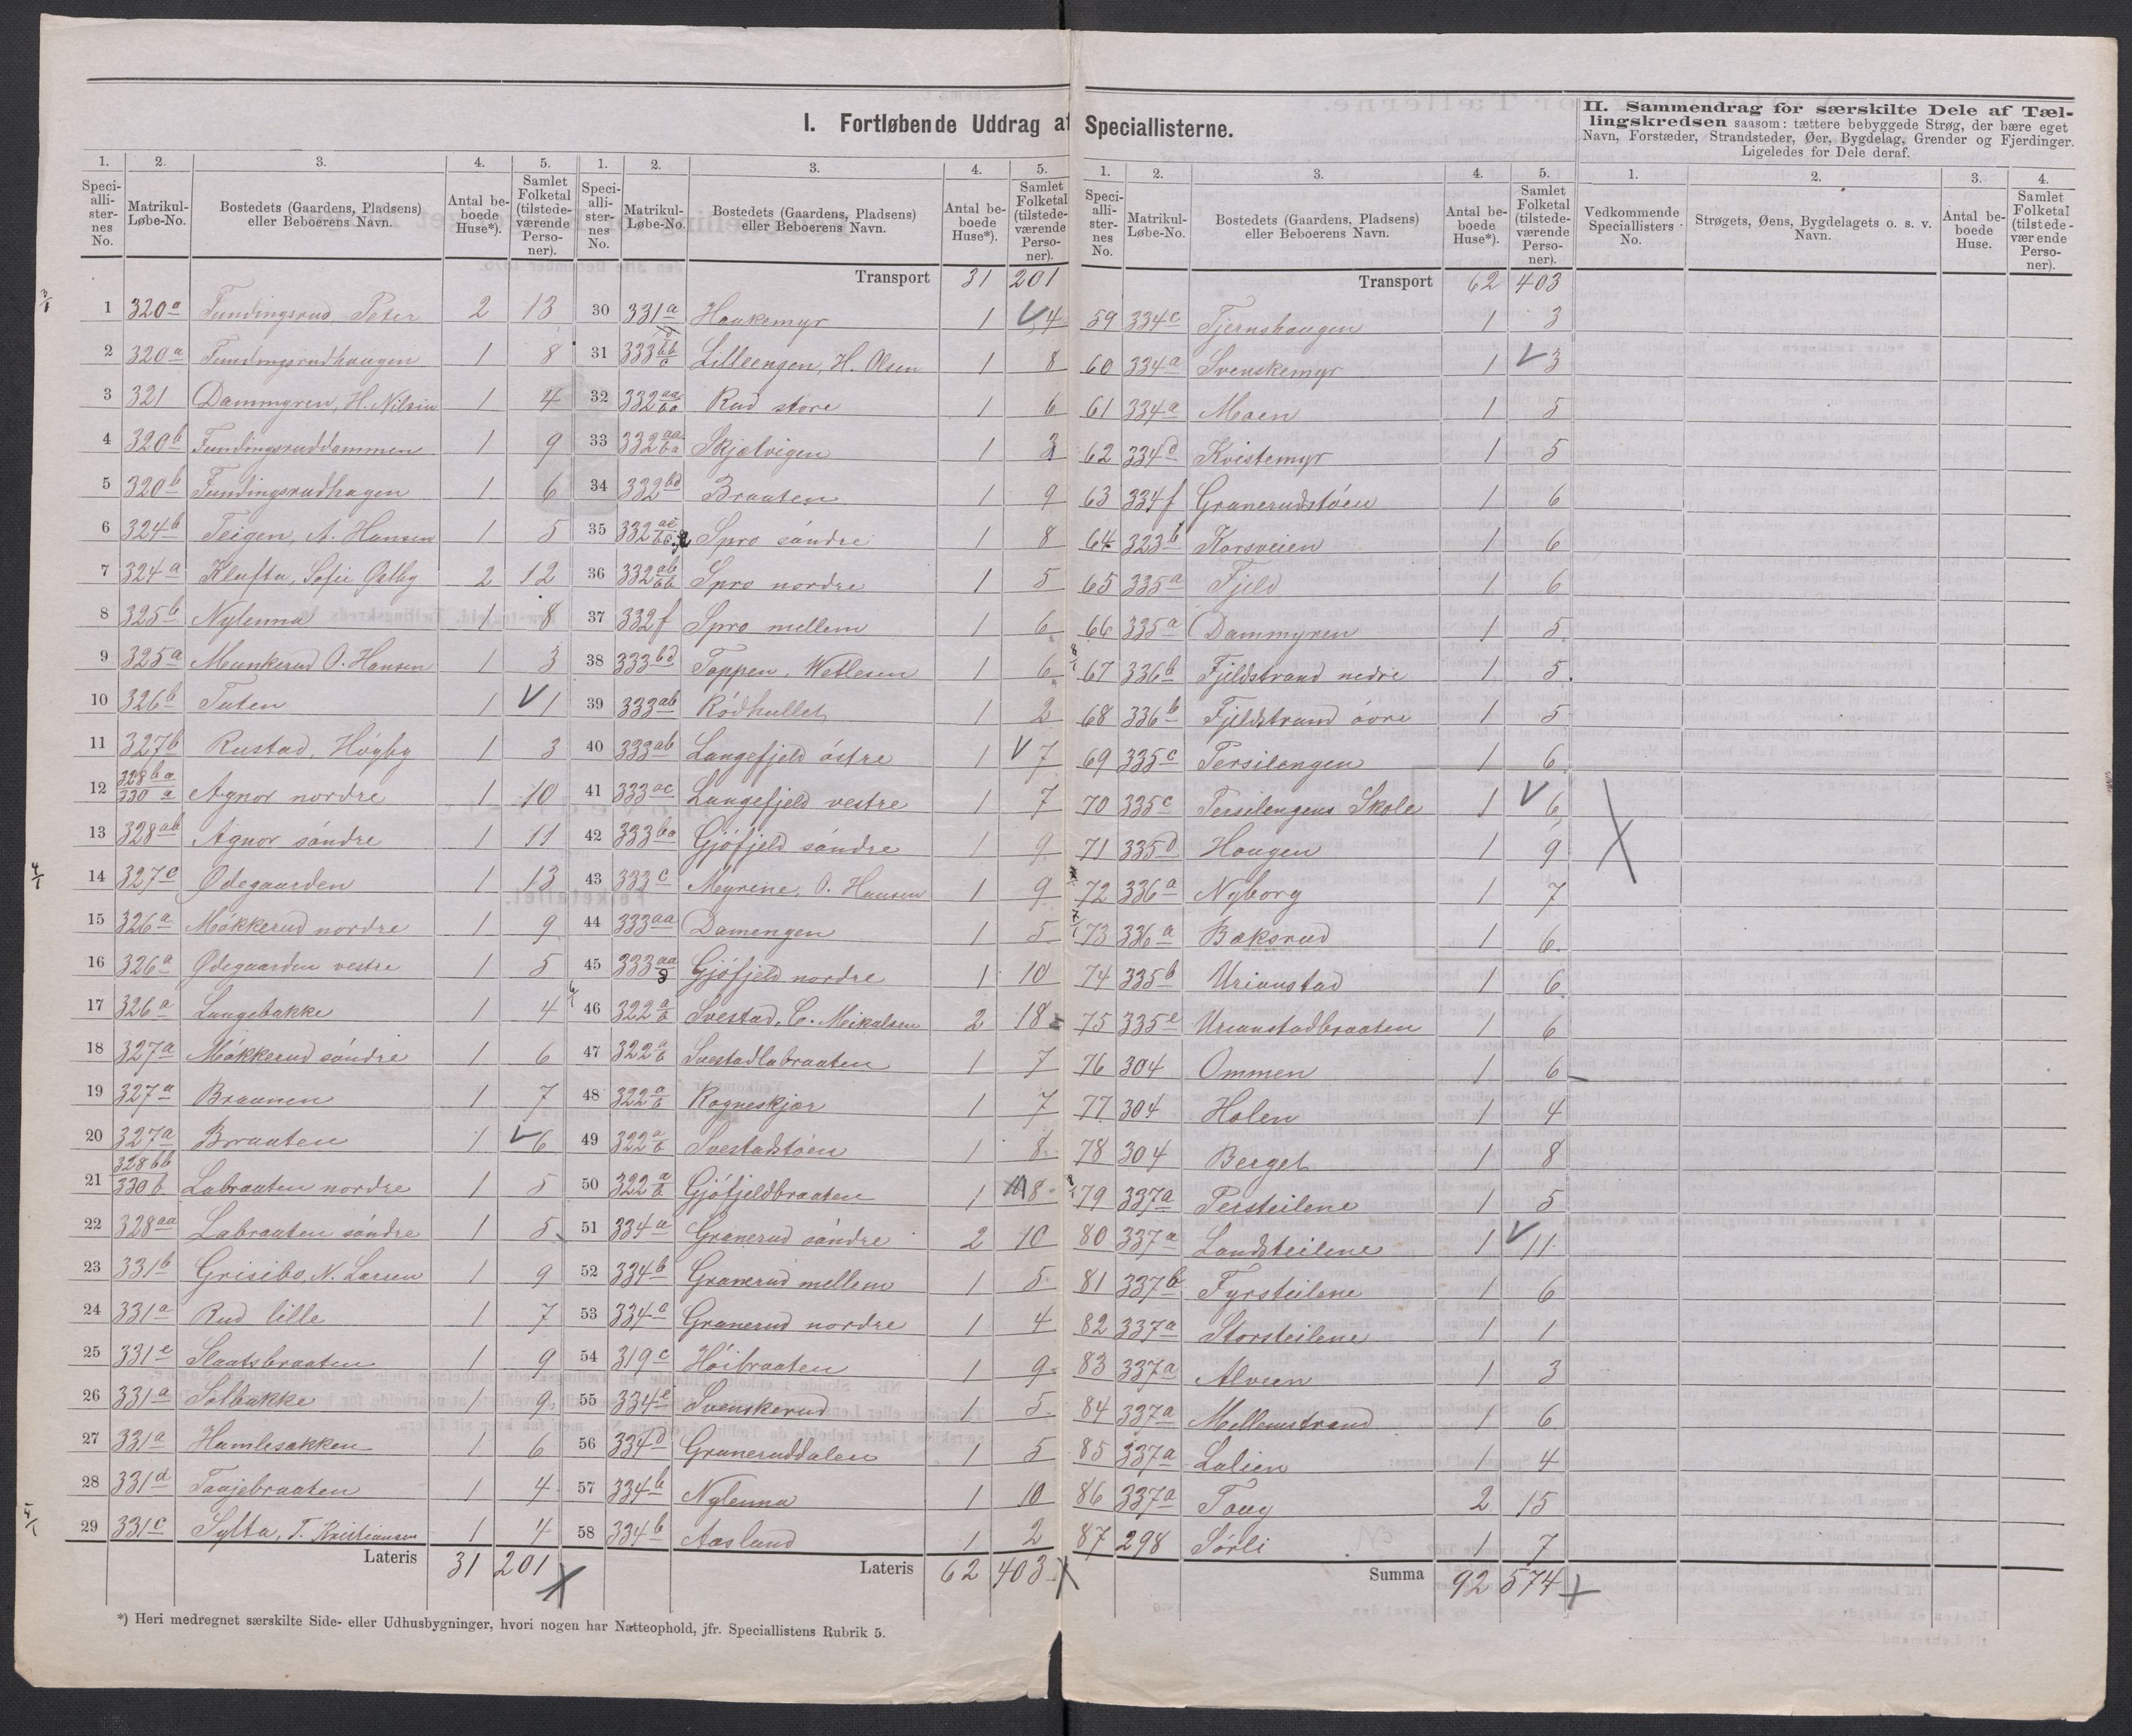 I. Fortløbende Uddrag af Speciallisterne.
II. Sammendrag for særskilte Dele af Tællingskredsen saasom: tættere bebyggede Strøg, der bære eget Navn, Forstæder, Strandsteder, Øer, Bygdelag, Grender og Fjerdinger. Ligeledes for Dele deraf.
1. 2. 3. 4. 5.
Speciallisternes No. Matrikul-Løbe-No. Bostedets (Gaardens, Pladsens) eller Beboerens Navn. Antal beboede Huse*). Samlet Folketal (tilstedeværende Personer).
1 320a Fundingsrud, Peter 2 13
2 320a Fundingsrudhaugen 1 8
3 321 Dammyren, H. Nilsen 1 4
4 320b Fundingsruddammen 1 9
5 320b Fundingsrudhagen 1 6
6 324b Teigen, A. Hansen 1 5
7 324a Klufta, Sofie Østby 2 12
8 325b Nylenna 1 8
9 325a Munkerud O. Hansen 1 3
10 326b Tuten 1 1
11 327b Rustad, Høgby 1 3
12 328ba 330a Agnor nordre 1 10
13 328ab Agnor söndre 1 11
14 327c Ødegaarden 1 13
15 326a Mökkerud nordre 1 9
16 326a Ødegaarden vestre 1 5
17 326a Langebakke 1 4
18 327a Mökkerud söndre 1 6
19 327a Braanen 1 7
20 327a Braaten 1 6
21 328bb 330b Labraaten nordre 1 5
22 328aa Labraaten söndre 1 5
23 331b Grisebo, N. Larsen 1 9
24 331a Rud lille 1 7
25 331e Slaatsbraaten 1 9
26 331a Solbakke 1 9
27 331a Humlesækken 1 6
28 331d Taajebraaten 1 4
29 331c Sylta, T. Kristiansen 1 4
Lateris 31 201
1. 2. 3. 4. 5.
Speciallisternes No. Matrikul-Løbe-No. Bostedets (Gaardens, Pladsens) eller Beboerens Navn. Antal beboede Huse*). Samlet Folketal (tilstedeværende Personer).
Transport 31 201
30 331a Haukemyr 1 4
31 333 Lilleengen, H. Olsen 1 8
32 332 Rud store 1 6
33 332 Skjælvigen 1 3
34 332bd Braaten 1 9
35 332 Spro söndre 1 8
36 332 Spro nordre 1 5
37 332f Spro mellem 1 6
38 333bd Toppen, Wetlesen 1 6
39 333ab Rödhullet 1 2
40 333ab Langefjeld östre 1 7
41 333ac Langefjeld vestre 1 7
42 333ba Gjöfjeld söndre 1 9
43 333c Myrene, O. Hansen 1 9
44 333aa Damengen 1 5
45 333aa Gjöfjeld nordre 1 10
46 322a b Svestad, C. Mikalsen 2 18
47 322a b Svestadlabraaten 1 7
48 322a b Rogneskjær 1 7
49 322a b Svestadstöen 1 8
50 322a b Gjöfjeldbraaten 1 8
51 334a Granerud söndre 2 10
52 334b Granerud mellem 1 5
53 334a Granerud nordre 1 4
54 319c Höibraaten 1 9
55 334e Svenskerud 1 5
56 334d Graneruddalen 1 5
57 334b Nylenna 1 10
58 334b Aasland 1 2
Lateris 62 403
1. 2. 3. 4. 5.
Speciallisternes No. Matrikul-Løbe-No. Bostedets (Gaardens, Pladsens) eller Beboerens Navn. Antal beboede Huse*). Samlet Folketal (tilstedeværende Personer).
Transport 62 403
59 334c Tjernshaugen 1 3
60 334a Svenskemyr 1 3
61 334a Moen 1 5
62 334d Kvistemyr 1 5
63 334f Granerudstöen 1 6
64 323b Korsveien 1 6
65 335a Fjeld 1 6
66 335a Dammyren 1 5
67 336b Fjeldstrand nedre 1 5
68 336b Fjeldstrand övre 1 5
69 335c Tersilengen 1 6
70 335c Tersilengens Skole 1 6
71 335d Haugen 1 9
72 336a Nyborg 1 7
73 336a Bøksrud 1 6
74 335b Urianstad 1 6
75 335e Urianstadbraaten 1 6
76 304 Ommen 1 6
77 304 Holen 1 4
78 304 Berget 1 8
79 337a Persteilene 1 5
80 337a Landsteilene 1 11
81 337b Fyrsteilene 1 6
82 337a Storsteilene 1 1
83 337a Alveen 1 3
84 337a Mellemstrand 1 6
85 337a Lalien 1 4
86 337a Toug 2 15
87 298 Sörli 1 7
Summa 92 574
1. 2. 3. 4.
Vedkommende Speciallisters No. Strøgets, Øens, Bygdelagets o. s. v. Navn. Antal beboede Huse. Samlet Folketal (tilstedeværende Personer).
*) Heri medregnet særskilte Side- eller Udhusbygninger, hvori nogen har Natteophold, jfr. Speciallistens Rubrik 5.